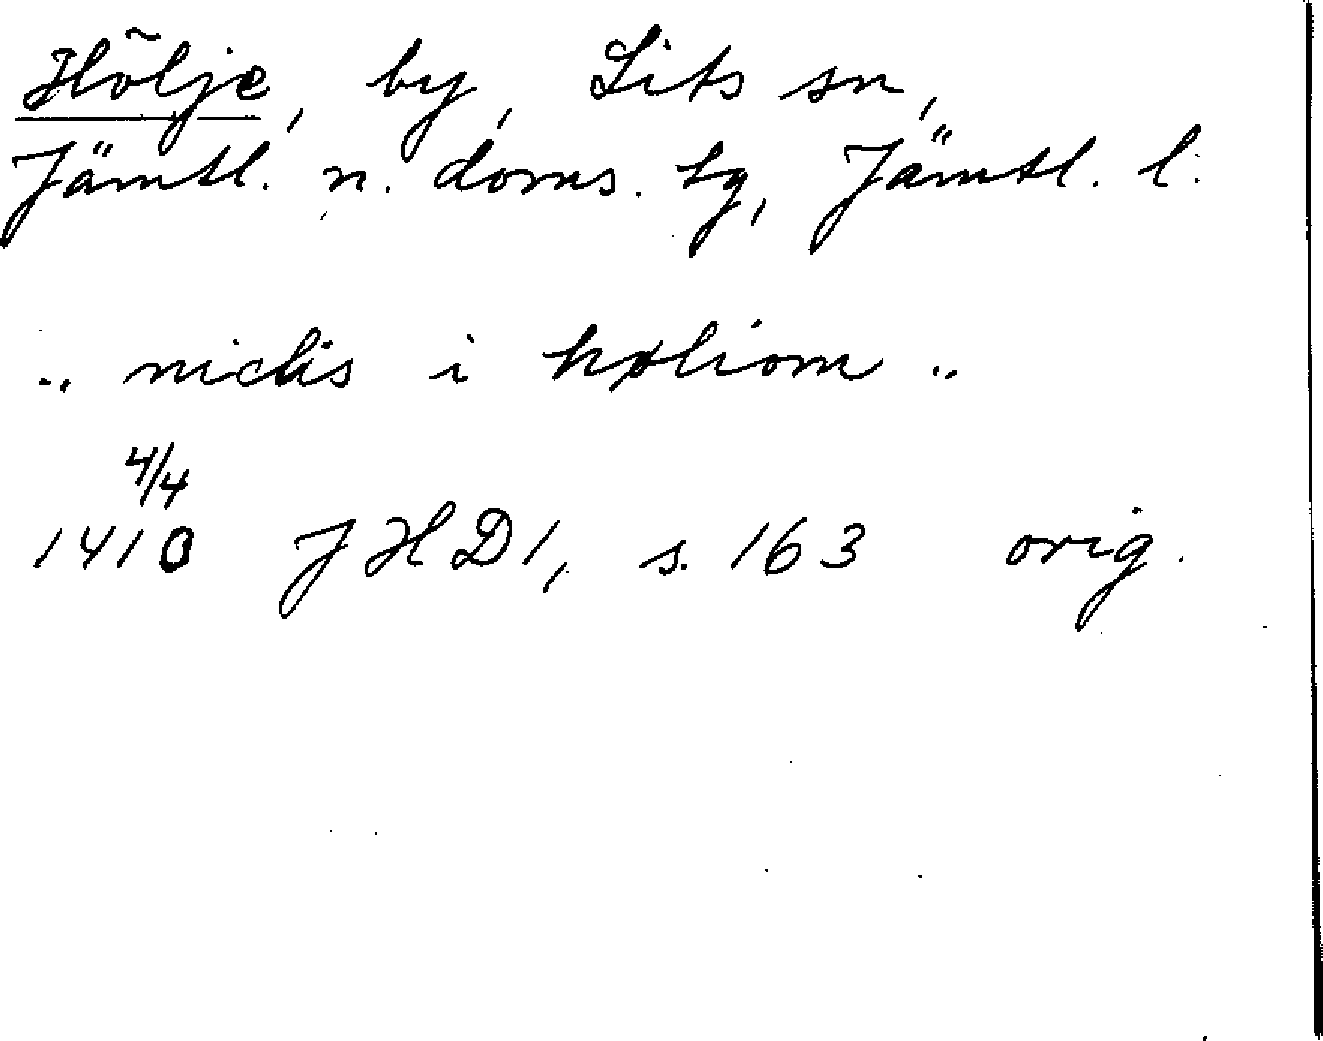 Hölje, by, Lits sn,
Jämtl. n. doms. tg, Jämtl. l.
.. niclis i høliom ..
4/4
1410 JHD1, s. 163 orig.